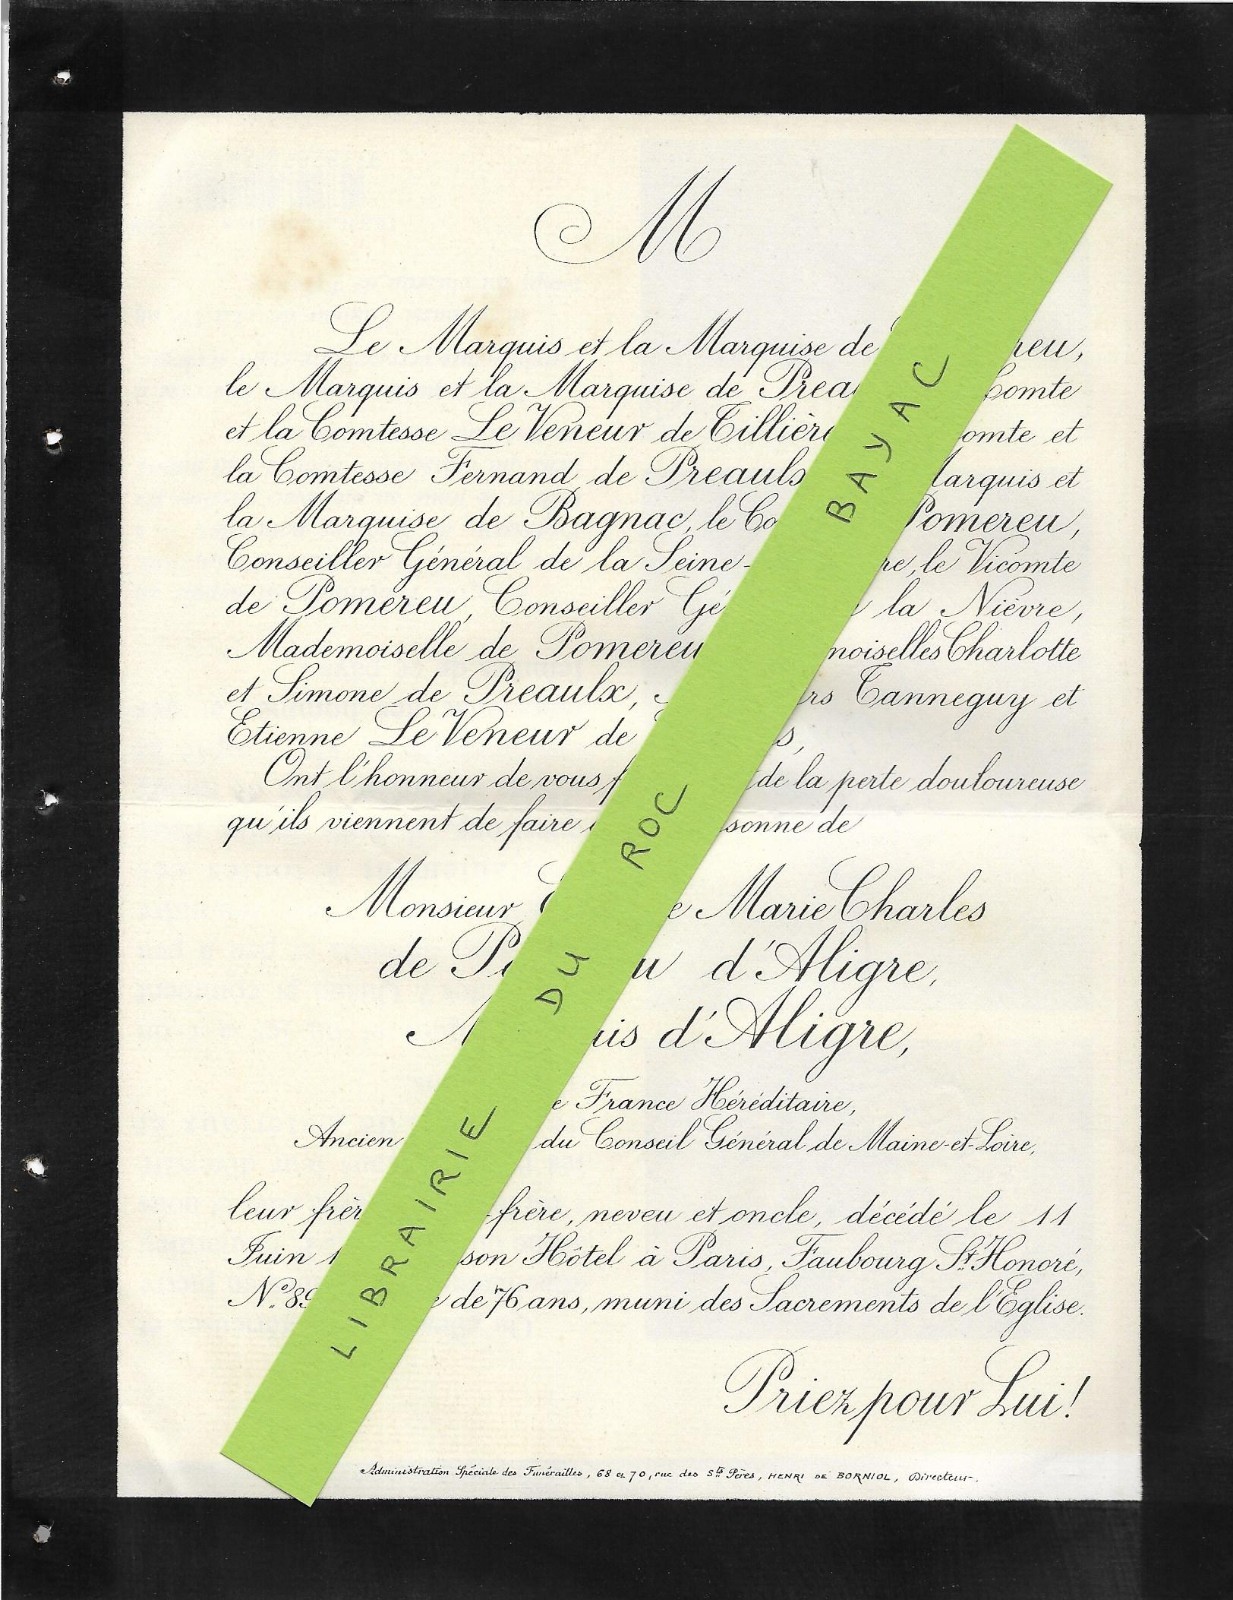 M
Le Marquis et la Marquise de reu,
le Marquis et la Marquise de Prea Comte
et la Comtesse Le Veneur de Tillièr omte et
la Comtesse Fernand de Preaulx arquis et
la Marquise de Bagnac, le Co Pomereu,
Conseiller Général de la Seine- re, le Vicomte
de Pomereu, Conseiller Gé la Nièvre,
Mademoiselle de Pomereu moiselles Charlotte
et Simone de Preaulx, rs Tanneguy et
Etienne Le Veneur de s,
Ont l'honneur de vous f de la perte douloureuse
qu'ils viennent de faire sonne de
Monsieur e Marie Charles
de P u d'Aligre,
M is d'Aligre,
e France Héréditaire,
Ancien du Conseil Général de Maine-et-Loire,
leur frèr -frère, neveu et oncle, décédé le 11
Juin 1 son Hôtel à Paris, Faubourg St. Honoré,
No. 89 e de 76 ans, muni des Sacrements de l'Eglise.
Priez pour Lui!
Administration Spéciale des Funérailles, 68 et 70, rue des Sts Pères, HENRI DE BORNIOL, Directeur.
LIBRAIRIE DU ROC BAYAC